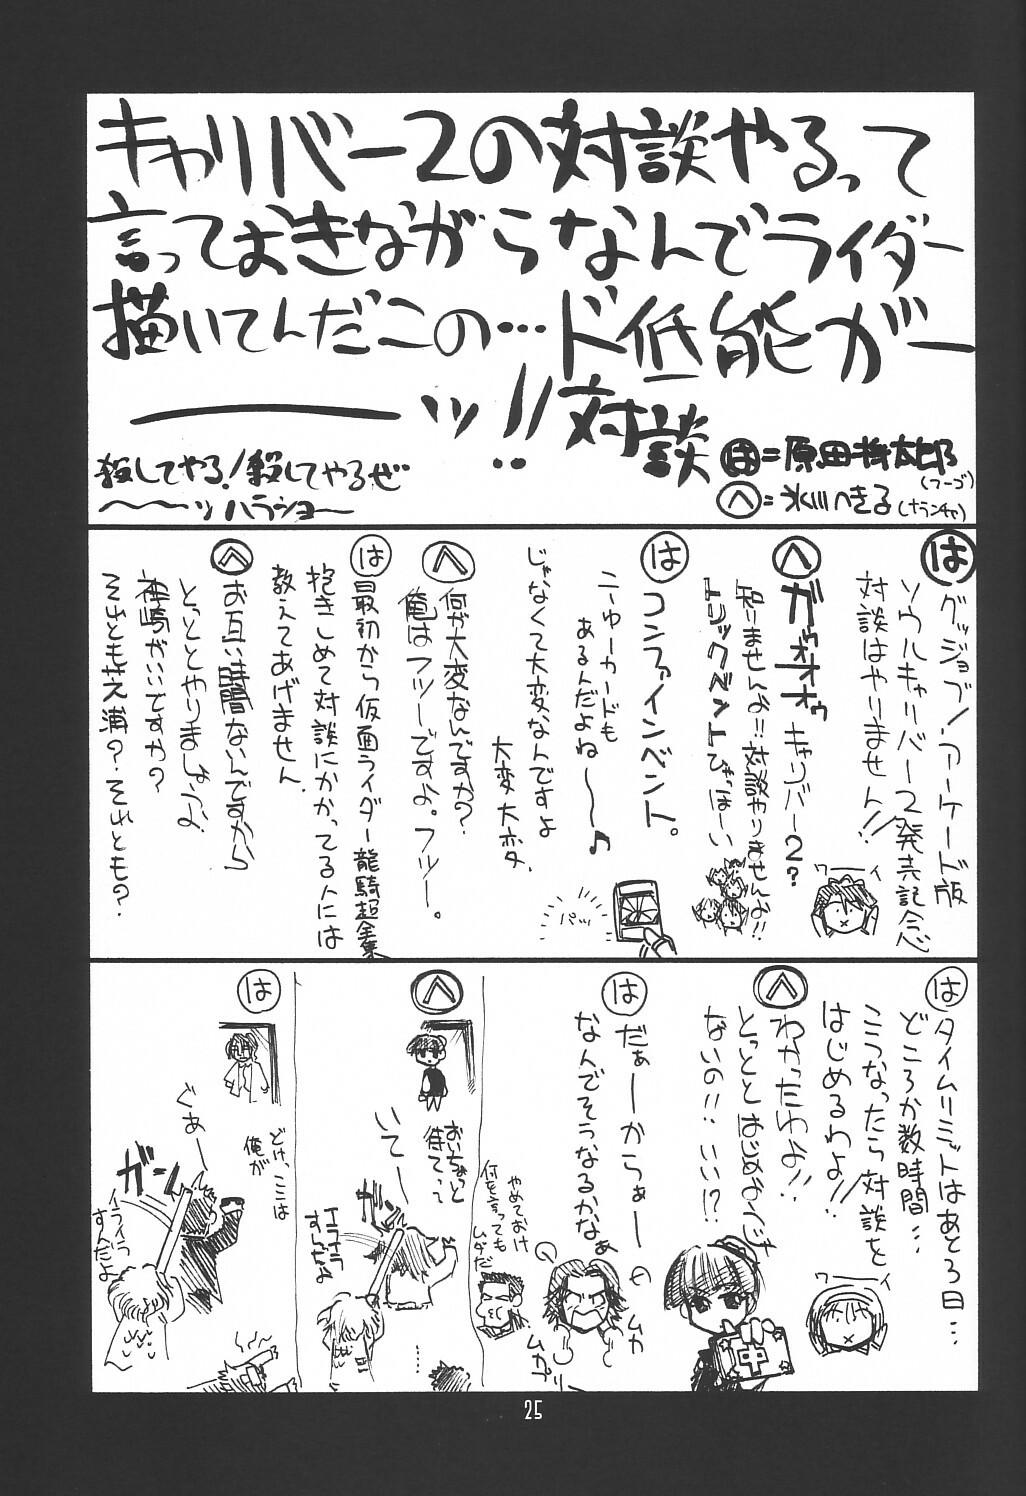 キャリバー2の対談やるって
言っておきながらなんでライダー
描いてんだこの…ド低能がー
ーーーーッ!!
対談
殺してやる!殺してやるぜ
〜〜〜ッハラショー
は=原田将太郎
(フーゴ)
へ=氷川へきる
(ナランチャ)
は
グッジョブ!アーケード版
ソウルキャリバー2発売記念
対談はやりません!!
ワーイ
へ
ガヴォオオオゥ
キャリバー2?
知りませんよ!!対談やりませんよ!!
トリックベントひゃっほーい
は
コンファインベント。
ニューカードも
あるんだよね〜♪
パッ
じゃなくて大変なんですよ
大変大変
へ
何が大変なんですか?
俺はフツーですよ。フツー。
は
最初から仮面ライダー龍騎超全集
抱きしめて対談にかかってる人には
教えてあげません
へ
お互い時間ないんですから
とっととやりましょうよ
神崎がいいですか?
それとも芝浦?それとも?
は
タイムリミットはあと3日…
どころか数時間…
こうなったら対談を
はじめるわよ!!
ワーイ
へ
わかったわよ!!
とっととはじめようじゃ
ないの!!いい!?
中
は
だぁーからぁーの
なんでそうなるかなぁ
ムカ
ムカ
やめておけ
何を言っても
ムダだ
へ
おいちょっと
待てって
いてー
ガッ
イライラ
すんだよ
……
は
どけ、ここは
俺が
ぐぁー
ガーン
イライラ
すんだよ
25